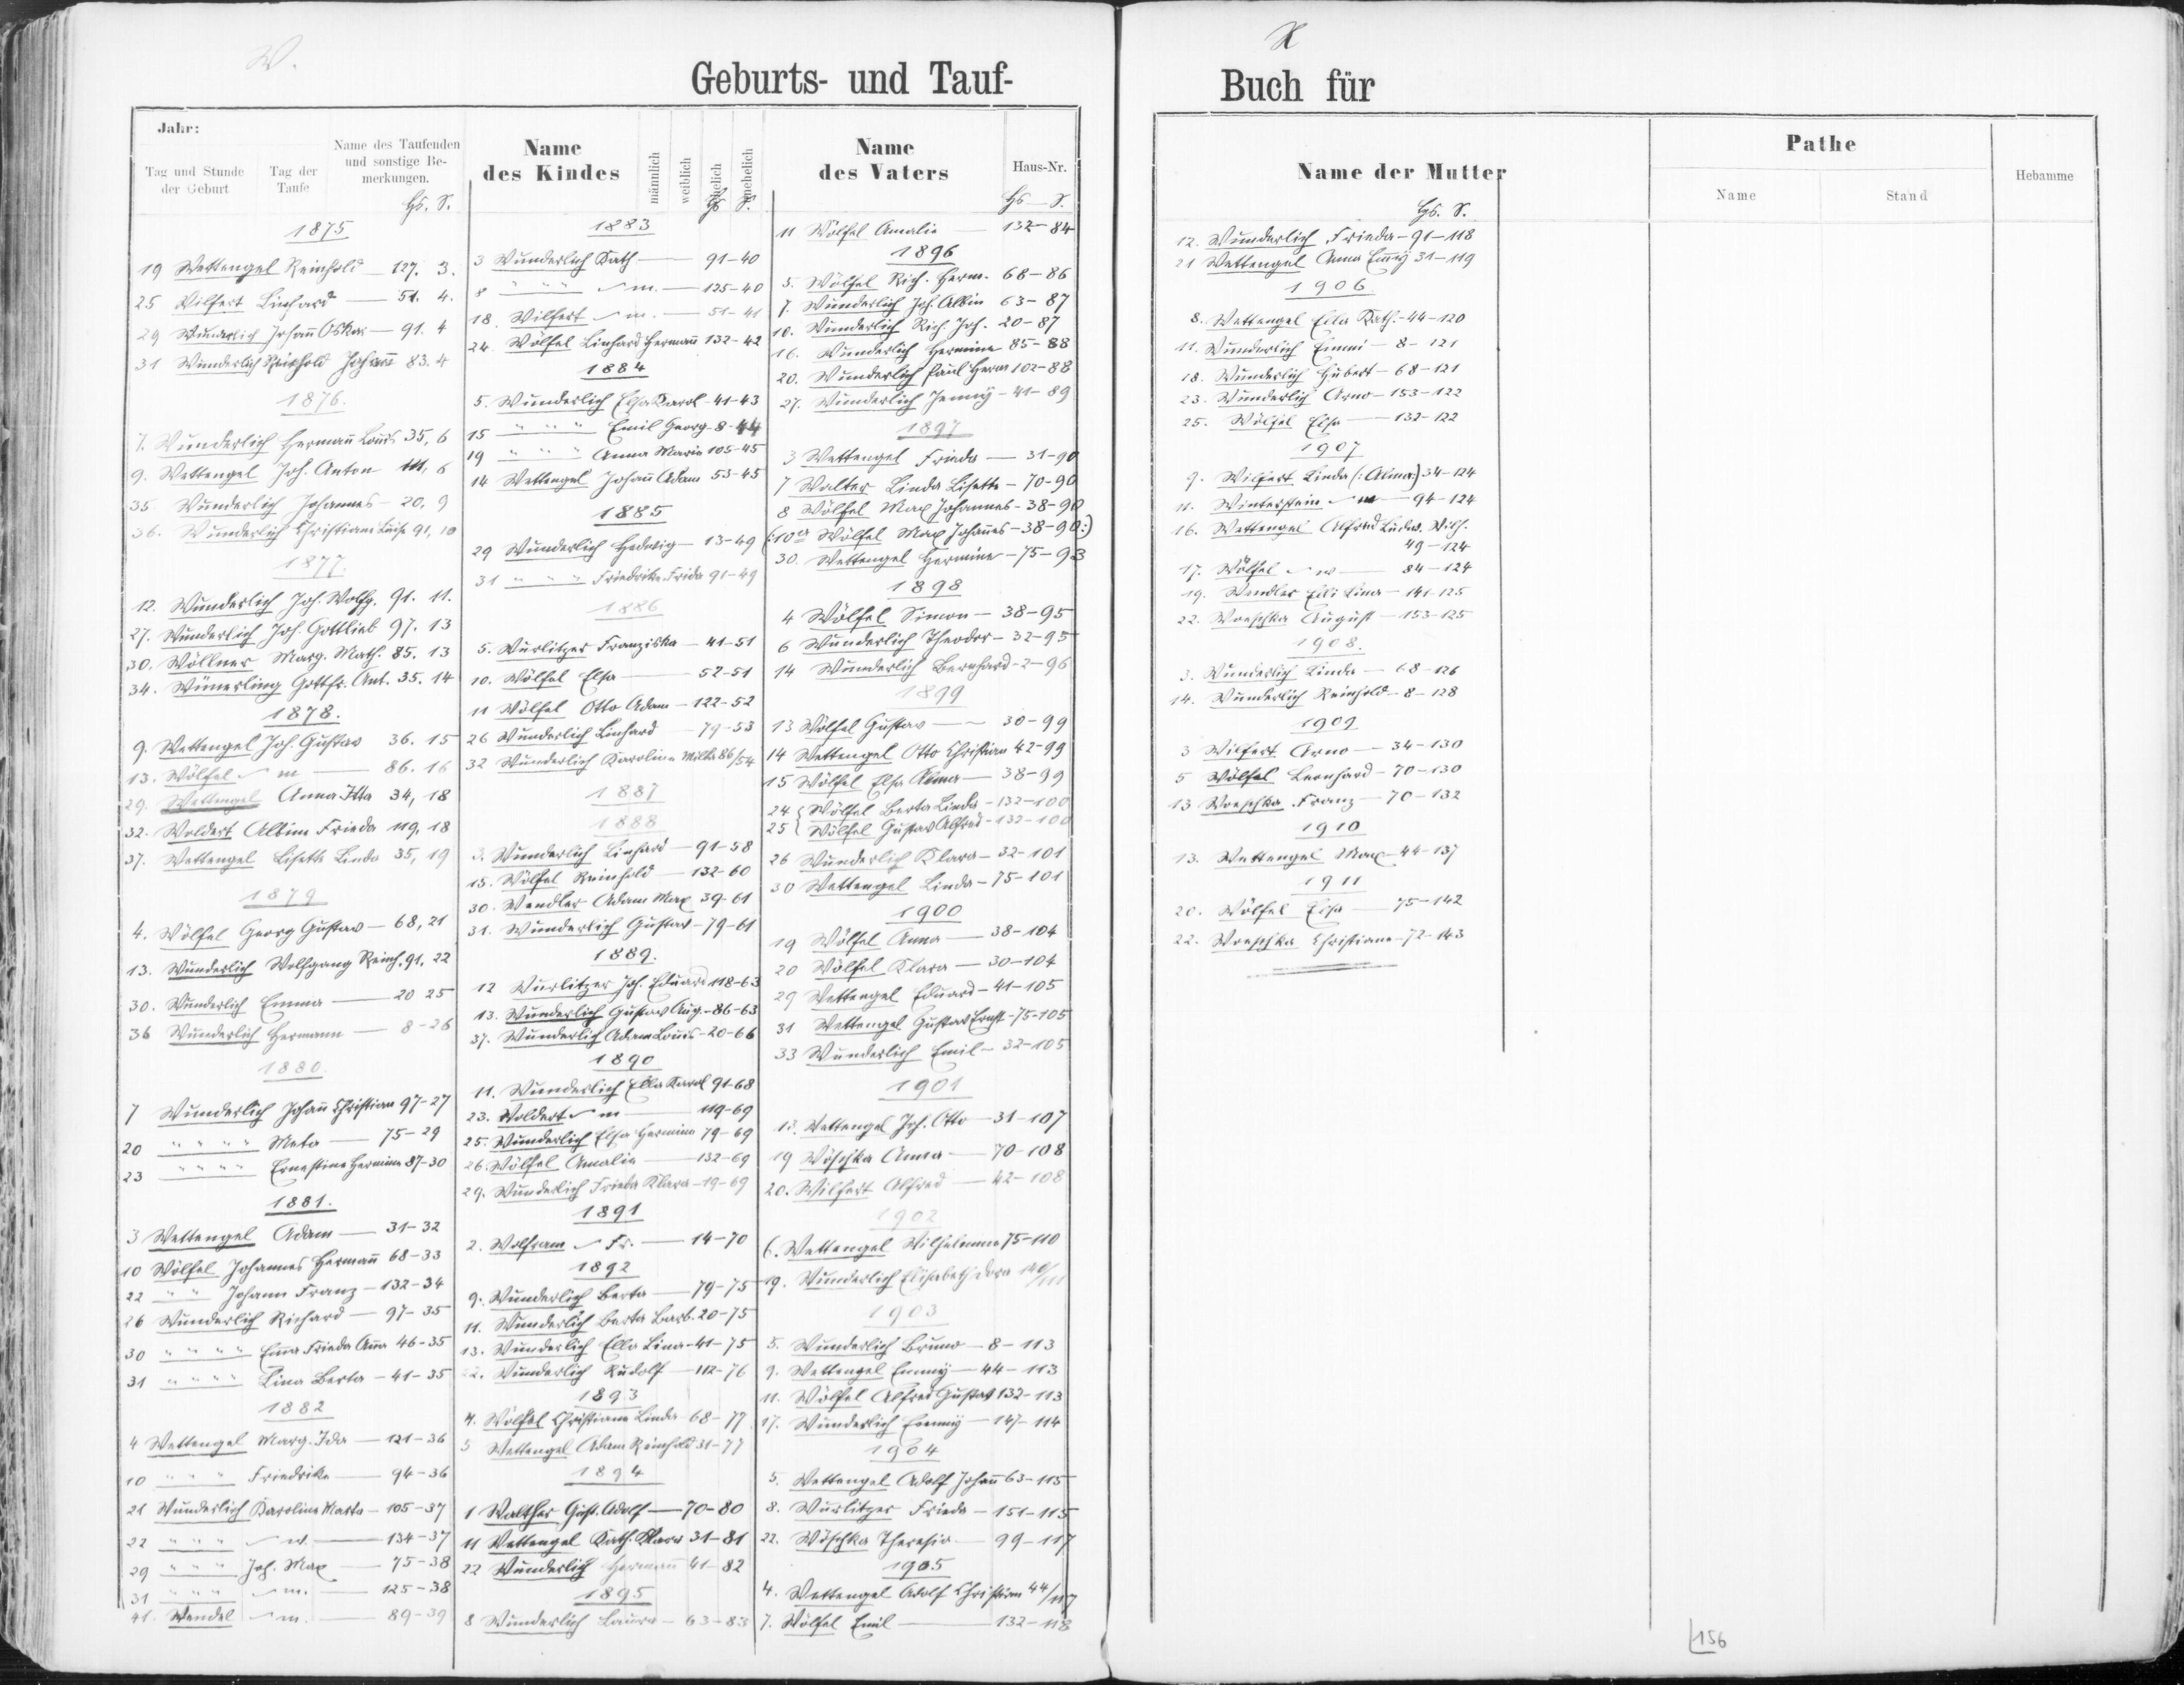 W.
Geburts- und Tauf-
Jahr:
Tag und Stunde der Geburt
Tag der Taufe
Name des Taufenden und sonstige Be-merkungen.
Hs. S.
1875
19 Wettengel Reinhold — 127. 3.
25 Wilfert Linhard — 51. 4.
29 Wunderlich Johañ Oskar — 91. 4
31 Wunderlich Reinhold Johañ 83. 4
1876.
7. Wunderlich Hermañ Louis 35, 6
9. Wettengel Joh. Anton 111, 6
35 Wunderlich Johannes — 20, 9
36. Wunderlich Christiane Luise 91, 10
1877.
12. Wunderlich Joh. Wolfg. 91. 11.
27. Wunderlich Joh. Gottlieb 97. 13
30. Wöllner Marg. Math. 85. 13
34. Wünerling Gottfr. Ant. 35. 14
1878.
9. Wettengel Joh. Gustav 36. 15
13. Wölfel m — 86. 16
29. Wettengel Anna Itta 34, 18
32. Woldert Albine Frieda 119, 18
37. Wettengel Lisette Linda 35, 19
1879
4. Wölfel Georg Gustav — 68, 21
13. Wunderlich Wolfgang Reinh. 91. 22
30. Wunderlich Emma — 20 25
36 Wunderlich Hermann — 8-26
1880.
7 Wunderlich Johañ Christian 97-27
20 " " " " Meta — 75-29
23 " " " " Ernestine Hermine 87-30
1881.
3 Wettengel Adam — 31-32
10 Wölfel Johannes Hermañ 68-33
22 " " Johann Franz — 132-34
26 Wunderlich Richard — 97-35
30 " " " " Ema Frieda Aña 46-35
31 " " " " Lina Berta — 41-35
1882
4 Wettengel Marg. Ida — 121-36
10 " " " Friedrike — 94-36
21 Wunderlich Karoline Marta — 105-37
22 " " " w. — 134-37
29 " " " Joh. Max — 75-38
31 " " " m. — 125-38
41. Wendel m. — 89-39
Name des Kindes
männlich
weiblich
ehelich
unehelich
Hs S.
1883
3 Wunderlich Kath — 91-40
8 " " " m. — 125-40
18. Wilfert m. — 51-41
24. Wölfel Linhard Hermañ 132-42
1884
5. Wunderlich Elsa Karol — 41-43
15 " " " Emil Georg — 8-44
19 " " " Anna Marie 105-45
14 Wettengel Johañ Adam 53-45
1885
29 Wunderlich Hedwig — 13-49
31 " " " Friedrike Frida 91-49
1886
5. Wurlitzer Franziska — 41-51
10. Wölfel Elsa — 52-51
11 Wölfel Otto Adam — 122-52
26 Wunderlich Linhard 79-53
32 Wunderlich Karoline Milka 86/54
1887
1888
3. Wunderlich Linhard — 91-58
15. Wölfel Reinhold — 132-60
30. Wendler Adam Max 39-61
31. Wunderlich Gustav — 79-61
1889.
12 Wurlitzer Joh. Eduard 118-63
13. Wunderlich Gustav Aug. — 86-63
37. Wunderlich Adam Louis — 20-66
1890
11. Wunderlich Ella Karol 91-68
23. Woldert m — 119-69
25. Wunderlich Elsa Hermine 79-69
26 Wölfel Amalie — 132-69
29. Wunderlich Frieda Klara — 19-69
1891
2. Wolfram Fr. — 14-70
1892
9. Wunderlich Berta — 79-75
11. Wunderlich Berta Barb. 20-75
13. Wunderlich Ella Lina — 41-75
Wunderlich Rudolf — 112-76
1893
4. Wölfel Christiane Linda 68-77
5 Wettengel Adam Reinhold 31-77
1894
1 Walther Gust. Adolf — 70-80
11 Wettengel Kath. Klara 31-81
22 Wunderlich Hermañ 41-82
1895
8 Wunderlich Laura — 63-83
Name des Vaters
Haus-Nr.
Hs — S.
11 Wölfel Amalie — 132-84
1896
5. Wölfel Rich. Herm. 68-86
7. Wunderlich Joh. Albin 63-87
10. Wunderlich Rich. Joh. 20-87
16. Wunderlich Hermine 85-88
20. Wunderlich Paul Herm 102-88
27. Wunderlich Jenny — 41-89
1897
3 Wettengel Frieda — 31-90
7 Walter Linda Lisette — 70-90
8 Wölfel Max Johannes — 38-90
(:10a Wölfel Max Johañes — 38-90:)
30. Wettengel Hermine — 75-93
1898
4 Wölfel Simon — 38-95
6 Wunderlich Theodor — 32-95
14 Wunderlich Bernhard — 2-96
1899
13 Wölfel Gustav — 30-99
14 Wettengel Otto Christian 42-99
15 Wölfel Elsa Alma — 38-99
24 Wölfel Berta Linda — 132-100
25 Wölfel Gustav Alfred — 132-100
26 Wunderlich Klara — 32-101
30 Wettengel Linda — 75-101
1900
19 Wölfel Anna — 38-104
20 Wölfel Klara — 30-104
29 Wettengel Eduard — 41-105
31 Wettengel Gustav Ernst — 75-105
33 Wunderlich Emil — 32-105
1901
13. Wettengel Joh. Otto — 31-107
19 Wöschka Anna — 70-108
20. Wilfert Alfred — 42-108
1902
6. Wettengel Wilhelmine 75-110
19. Wunderlich Elisabeth Dora 140/111
1903
5. Wunderlich Bruno — 8-113
9. Wettengel Emmy — 44-113
11. Wölfel Alfred Gustav 132-113
17. Wunderlich Emmy — 147-114
1904
5. Wettengel Adolf Johañ 63-115
8. Wurlitzer Frieda — 151-115
22. Wöschka Theresia — 99-117
1905
4. Wettengel Adolf Christian 44/117
7. Wölfel Emil — 132-118
Buch für
Name der Mutter
Pathe
Name
Stand
Hebamme
Hs. S.
12. Wunderlich Frieda — 91-118
21 Wettengel Anna Emy 31-119
1906
8. Wettengel Ella Kath. — 44-120
11. Wunderlich Emmi — 8-121
18. Wunderlich Hubert — 68-121
23. Wunderlich Arno — 153-122
25. Wölfel Elsa — 132-122
1907
9. Wilfert Linda (:Alma:) 34-124
11. Winterstein — 94-124
16. Wettengel Alfred Ludw. Wilh.
49-124
17. Wölfel w — 84-124
19. Wendler Elli Lina — 141-125
22. Woeschka August — 153-125
1908.
3. Wunderlich Linda — 68-126
14. Wunderlich Reinhold — 8-128
1909
3 Wilfert Arno — 34-130
5 Wölfel Leonhard — 70-130
13 Woeschka Franz — 70-132
1910
13. Wettengel Max — 44-137
1911
20. Wölfel Elsa — 75-142
22. Woeschka Christiane — 72-143
156